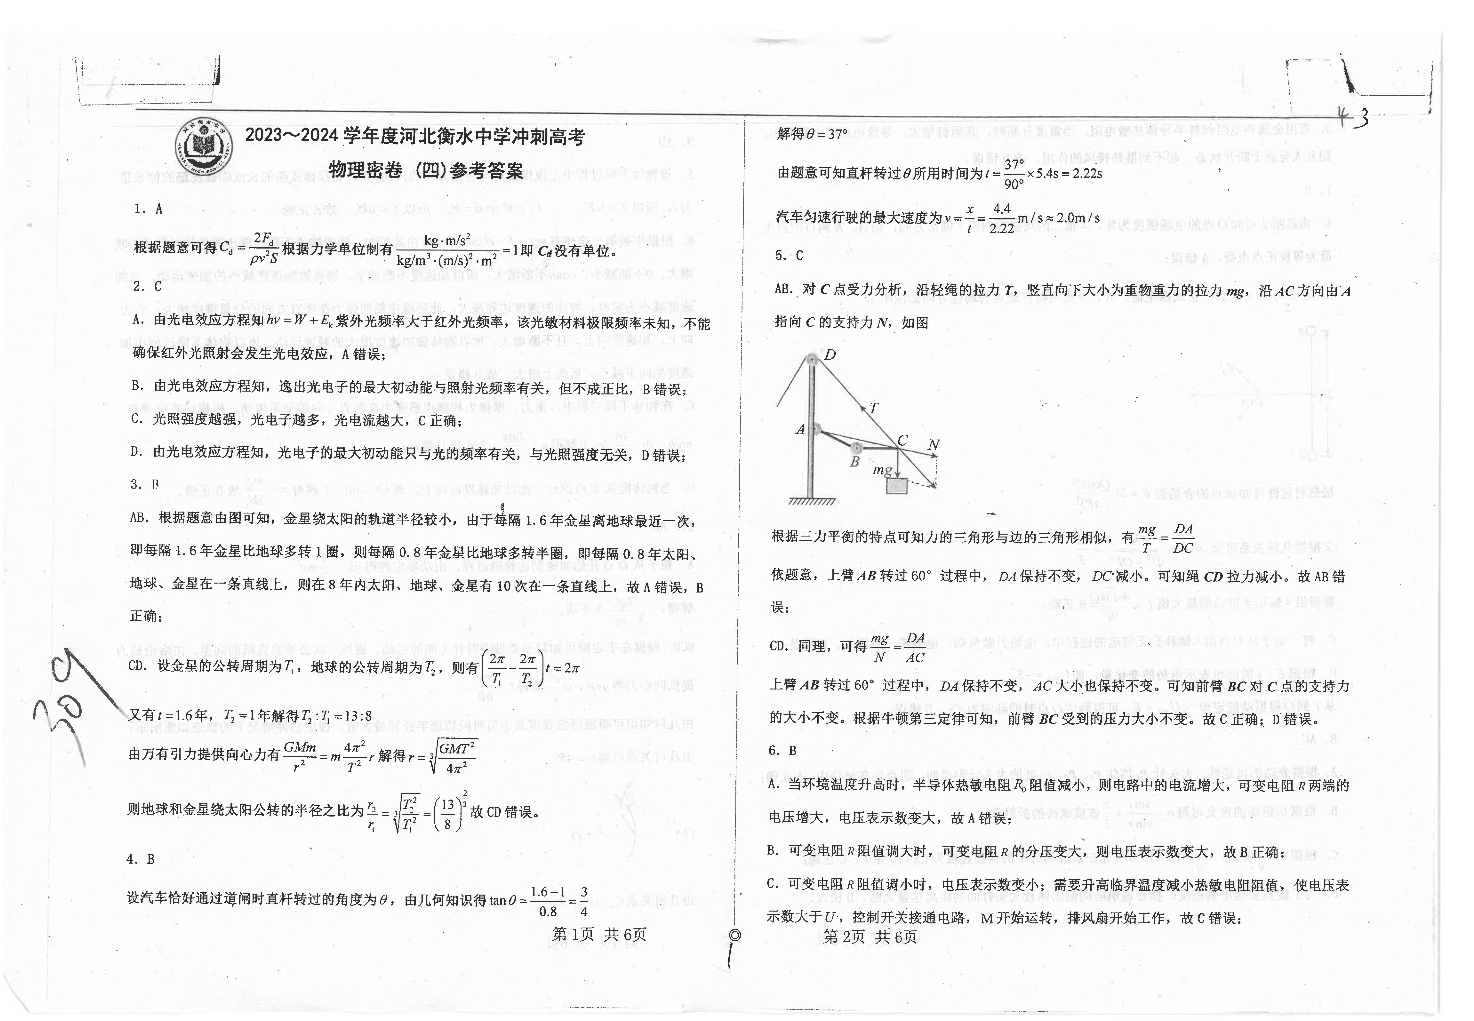 43
2023～2024 学年度河北衡水中学冲刺高考
物理密卷 (四)参考答案
1．A
根据题意可得C_d = 2F_d/ρv²S 根据力学单位制有 kg·m/s² / kg/m³·(m/s)²·m² =1即 C_d没有单位。
2．C
A．由光电效应方程知hν=W+E_k紫外光频率大于红外光频率，该光敏材料极限频率未知，不能
确保红外光照射会发生光电效应，A 错误；
B．由光电效应方程知，逸出光电子的最大初动能与照射光频率有关，但不成正比，B 错误；
C．光照强度越强，光电子越多，光电流越大，C 正确；
D．由光电效应方程知，光电子的最大初动能只与光的频率有关，与光照强度无关，D 错误；
3．B
AB．根据题意由图可知，金星绕太阳的轨道半径较小，由于每隔 1.6 年金星离地球最近一次，
即每隔 1.6 年金星比地球多转 1 圈，则每隔 0.8 年金星比地球多转半圈，即每隔 0.8 年太阳、
地球、金星在一条直线上，则在 8 年内太阳、地球、金星有 10 次在一条直线上，故 A 错误，B
正确；
CD．设金星的公转周期为T₁，地球的公转周期为T₂，则有(2π/T₁ - 2π/T₂)t=2π
又有t=1.6年，T₂=1年解得T₂:T₁=13:8
由万有引力提供向心力有 GMm/r² = m 4π²/T² r 解得r=∛(GMT²/4π²)
则地球和金星绕太阳公转的半径之比为 r₂/r₁ = ∛(T₂²/T₁²) = (13/8)^(2/3) 故 CD 错误。
4．B
设汽车恰好通过道闸时直杆转过的角度为θ，由几何知识得tanθ= 1.6-1/0.8 = 3/4
第 1页 共 6页
309
解得θ=37°
由题意可知直杆转过θ所用时间为t= 37°/90° ×5.4s=2.22s
汽车匀速行驶的最大速度为v= x/t = 4.4/2.22 m/s≈2.0m/s
5．C
AB．对 C 点受力分析，沿轻绳的拉力 T，竖直向下大小为重物重力的拉力 mg，沿 AC 方向由 A
指向 C 的支持力 N，如图
D
T
A
C
N
B
mg
根据三力平衡的特点可知力的三角形与边的三角形相似，有 mg/T = DA/DC
依题意，上臂 AB 转过 60° 过程中，DA保持不变，DC减小。可知绳 CD 拉力减小。故 AB 错
误；
CD．同理，可得 mg/N = DA/AC
上臂 AB 转过 60° 过程中，DA保持不变，AC大小也保持不变。可知前臂 BC 对 C 点的支持力
的大小不变。根据牛顿第三定律可知，前臂 BC 受到的压力大小不变。故 C 正确；D 错误。
6．B
A．当环境温度升高时，半导体热敏电阻R₀阻值减小，则电路中的电流增大，可变电阻R两端的
电压增大，电压表示数变大，故 A 错误；
B．可变电阻R阻值调大时，可变电阻R的分压变大，则电压表示数变大，故 B 正确；
C．可变电阻R阻值调小时，电压表示数变小；需要升高临界温度减小热敏电阻阻值，使电压表
示数大于U，控制开关接通电路，M 开始运转，排风扇开始工作，故 C 错误；
第 2页 共 6页
1